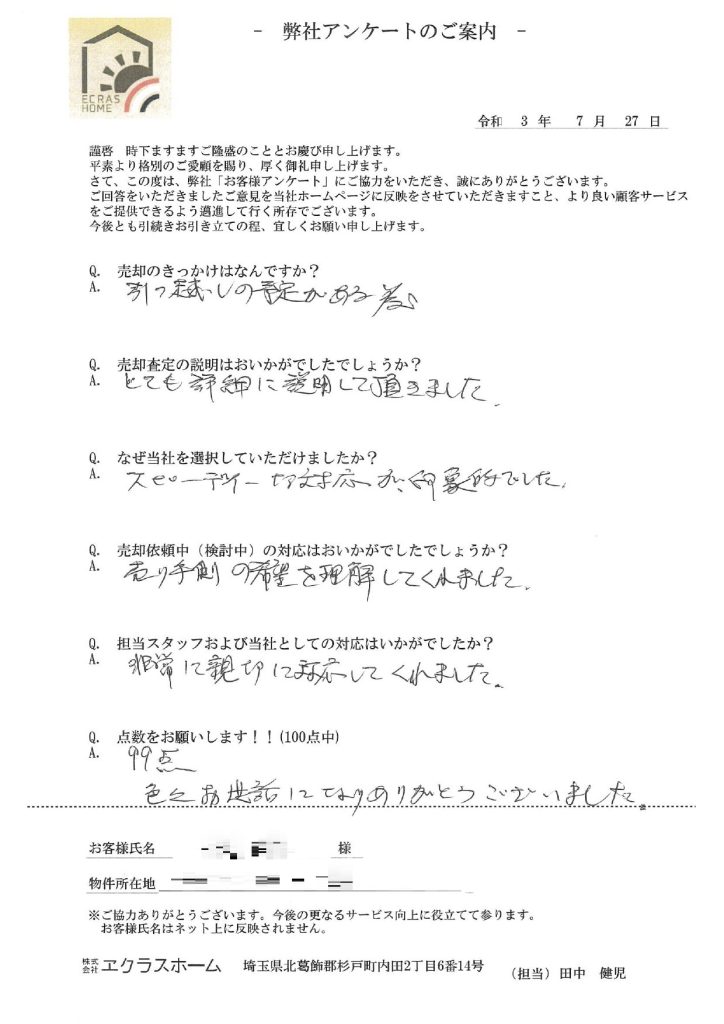 ECRAS
HOME
- 弊社アンケートのご案内 -
令和 3 年 7 月 27 日
謹啓 時下ますますご隆盛のこととお慶び申し上げます。
平素より格別のご愛顧を賜り、厚く御礼申し上げます。
さて、この度は、弊社「お客様アンケート」にご協力をいただき、誠にありがとうございます。
ご回答をいただきましたご意見を当社ホームページに反映をさせていただきますこと、より良い顧客サービス
をご提供できるよう邁進して行く所存でございます。
今後とも引続きお引き立ての程、宜しくお願い申し上げます。
Q. 売却のきっかけはなんですか？
A. 引っ越しの予定がある為
Q. 売却査定の説明はおいかがでしたでしょうか？
A. とても詳細に説明して頂きました.
Q. なぜ当社を選択していただけましたか？
A. スピーディーな対応が、印象的でした.
Q. 売却依頼中（検討中）の対応はおいかがでしたでしょうか？
A. 売り手側の希望を理解してくれました.
Q. 担当スタッフおよび当社としての対応はいかがでしたか？
A. 非常に親切に対応してくれました.
Q. 点数をお願いします！！(100点中)
A. 99点
色々お世話になりありがとうございました.
お客様氏名 様
物件所在地
※ご協力ありがとうございます。今後の更なるサービス向上に役立てて参ります。
お客様氏名はネット上に反映されません。
株式会社 ヱクラスホーム 埼玉県北葛飾郡杉戸町内田2丁目6番14号 （担当）田中 健児